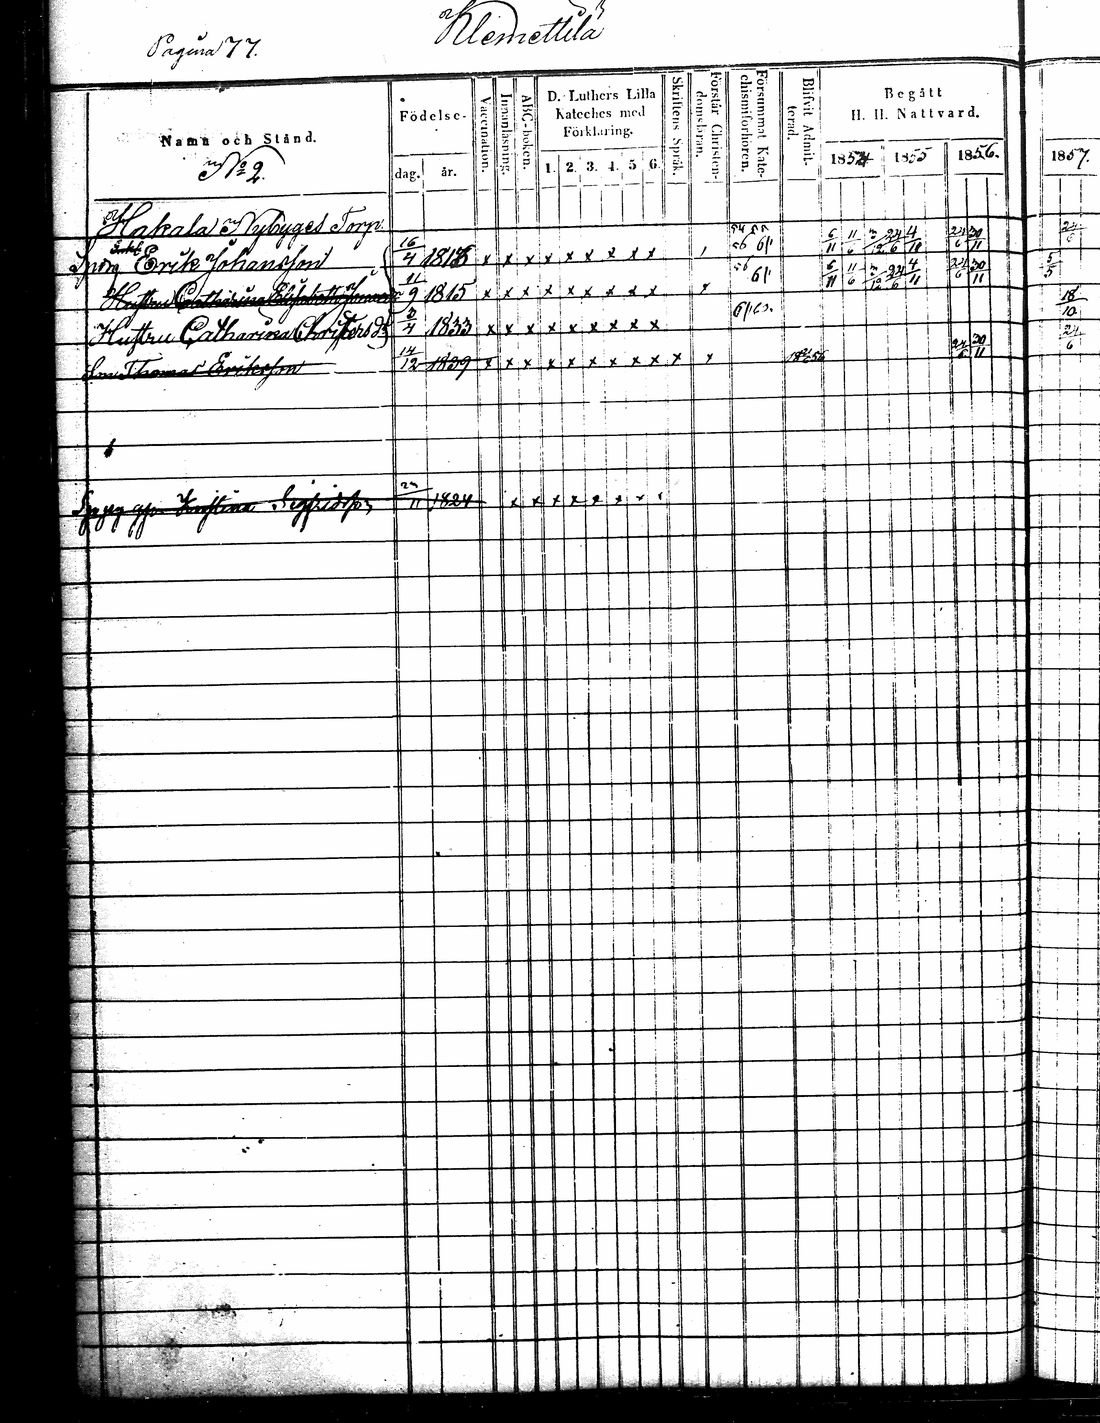 Pagina 77.
Klemettilä
Namn och Stånd.
No 2.
Födelse-
dag. år.
Vaccination.
Innanläsning.
ABC-boken.
D. Luthers Lilla
Kateches med
Förklaring.
1. 2. 3. 4. 5. 6.
Skriftens Språk.
Förstår Christen-
domsläran.
Försummat Kate-
chismiförhören.
Blifvit Admit-
terad.
Begått
H. H. Nattvard.
1854 1855 1856. 1857.
Hakala Nybygges Torp. 24/6
Erik Johansson 16/4 1813 x x x x x x x x x 56 61 6/11 11/6 24/6 4/11 24/6 30/11 5/5
Hustru Catharina Elisabeth 11/9 1815 x x x x x x x x x x 56 61 6/11 11/6 24/6 4/11 24/6 30/11 18/10
Hustru Catharina Christersdr 3/4 1833 x x x x x x x x x 24/6
Son Thomas Eriksson 14/12 1839 x x x x x x x x x x x 24/6 30/11
Sigfridsdr 11 1824 x x x x x x x